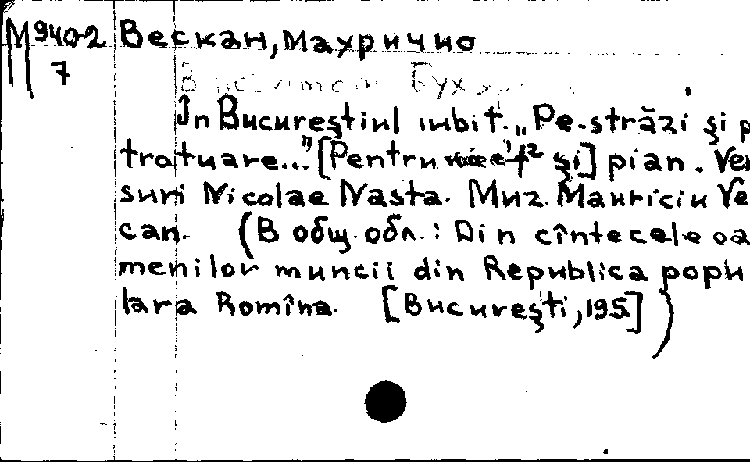 М 940-2 Вескан, Маурично
7
В Бух
În Bucureştiul iubit. „Pe-străzi şi p
tratuare..." [Pentru f² şi] pian. Ver
suri Nicolae Nasta. Муз. Mauriciu Ve
can. (В общ. обл.: Din cîntecele oa
menilor muncii din Republica popu
lara Romîna. [Bucureşti, 195.])